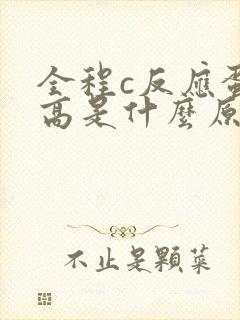 全程c反應蛋
高是什麼原
不止是顆菜